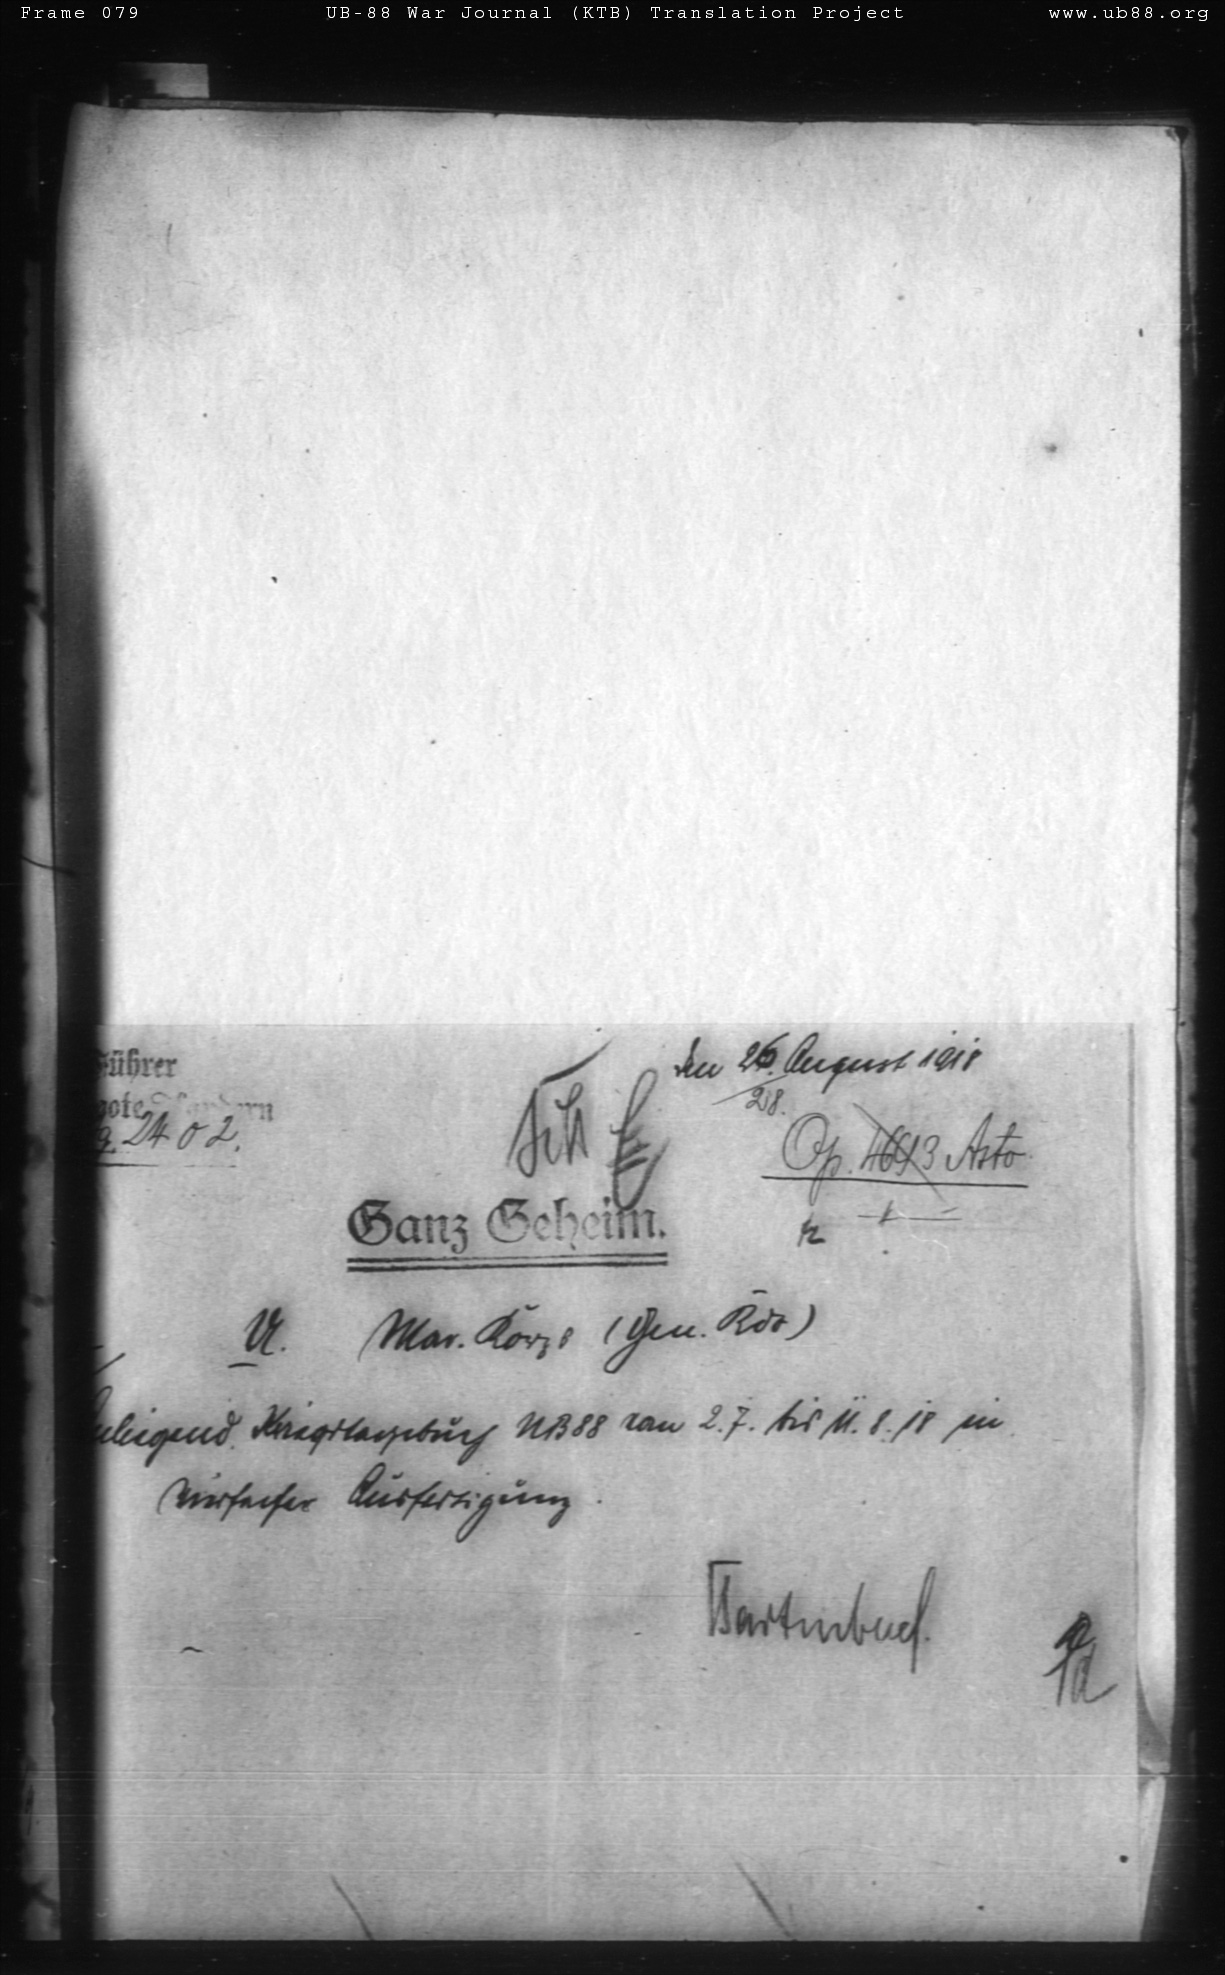 Frame 079 UB-88 War Journal (KTB) Translation Project www.ub88.org
Führer
den 26. August 1918
28.
oote Flandern
g. 2402.
Op. 4613 Asto
Ganz Geheim.
U. Mar. Korps (Gen. Kdo)
Anliegend Kriegstagebuch UB88 vom 2.7. bis 11.8.18 in
vierfacher Ausfertigung.
Bartenbach.